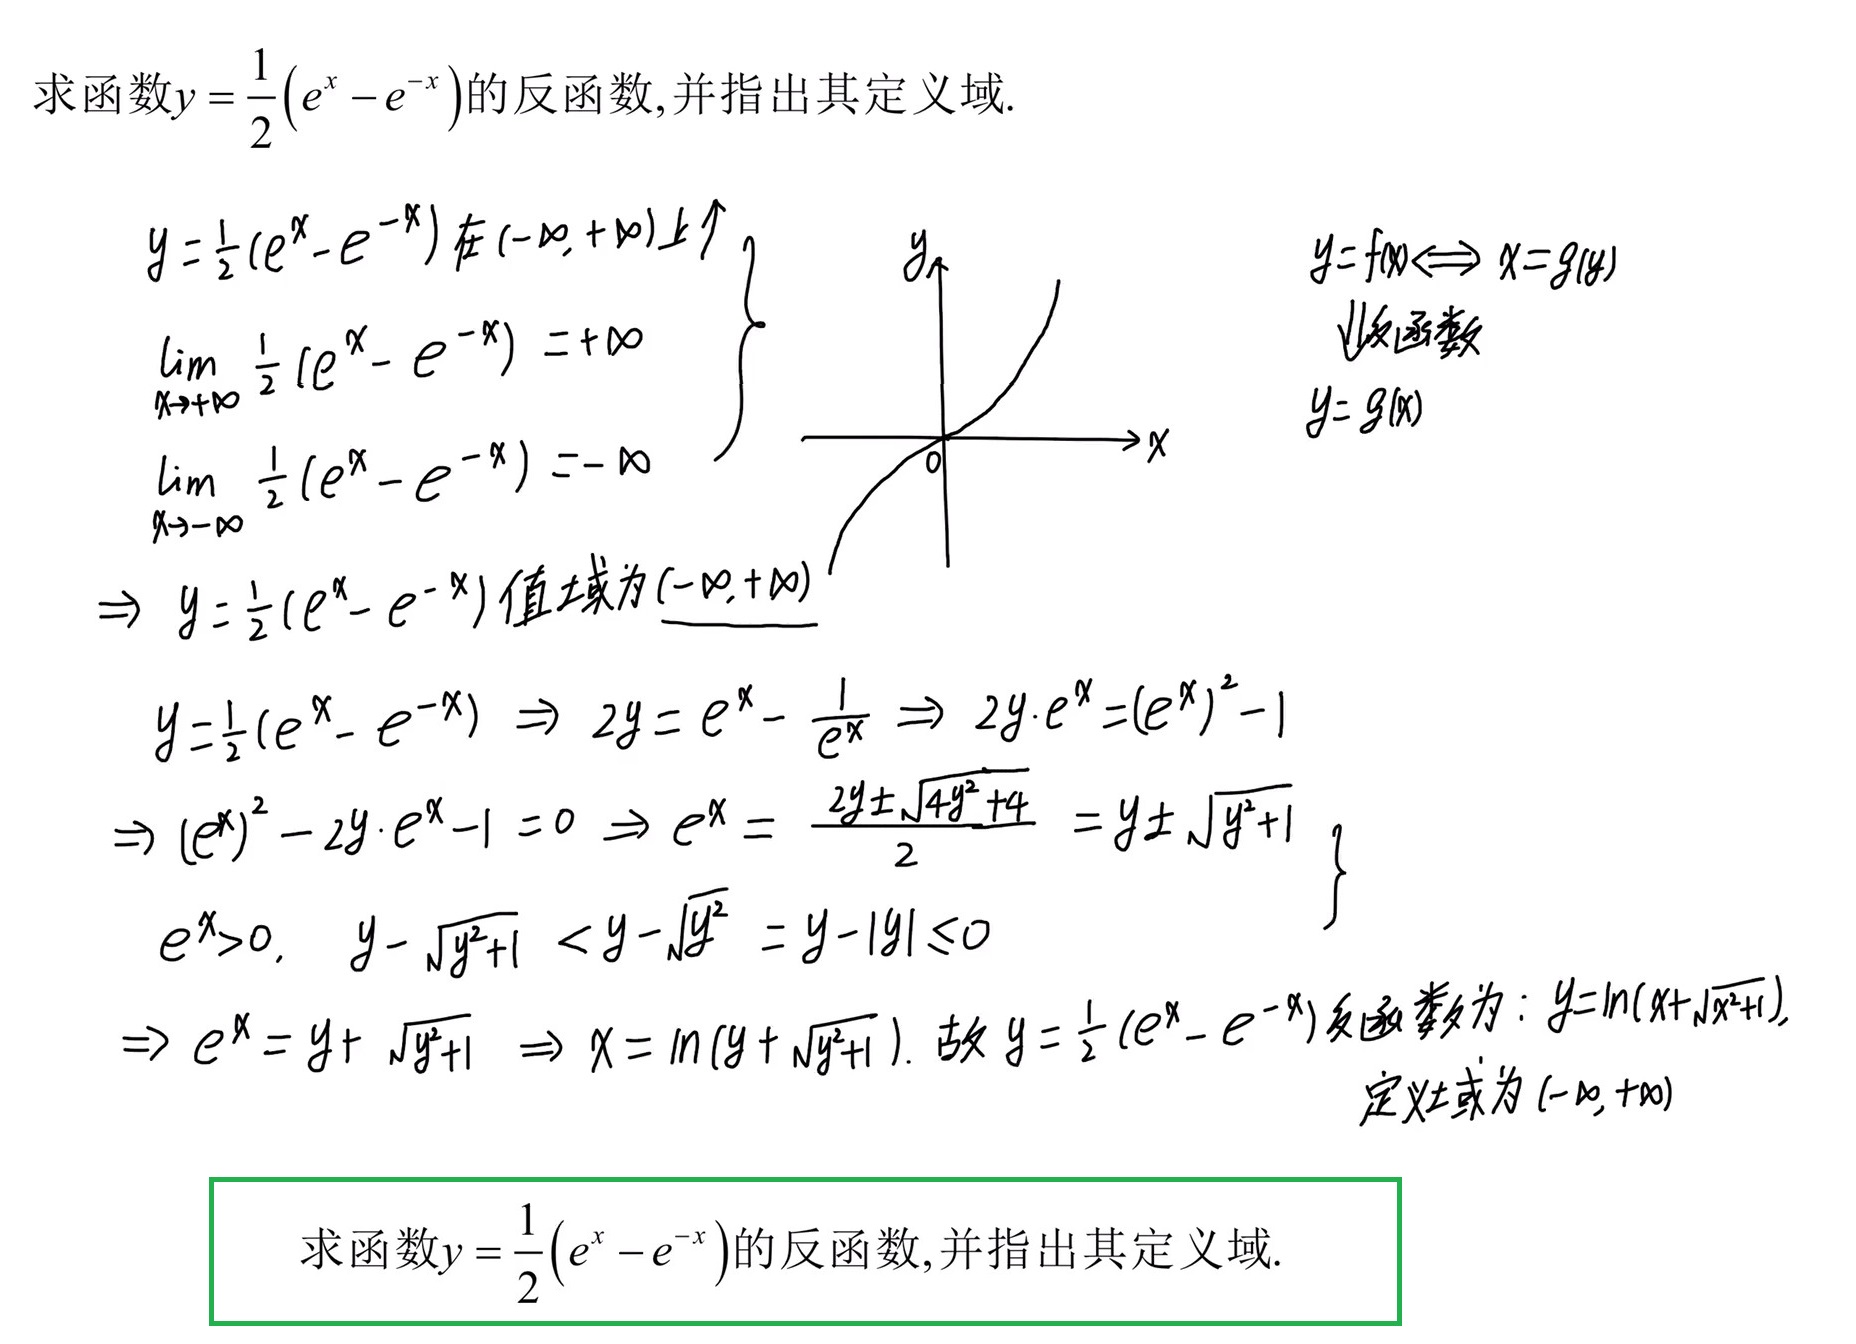 求函数y = 1/2(e^x − e^{−x})的反函数,并指出其定义域.
y = 1/2(e^x − e^{−x}) 在(−∞, +∞)上↑
lim_{x→+∞} 1/2(e^x − e^{−x}) = +∞
lim_{x→−∞} 1/2(e^x − e^{−x}) = −∞
y
x
0
y = f(x) ⟺ x = g(y)
⇓反函数
y = g(x)
⇒ y = 1/2(e^x − e^{−x}) 值域为(−∞, +∞)
y = 1/2(e^x − e^{−x}) ⇒ 2y = e^x − 1/e^x ⇒ 2y·e^x = (e^x)^2 − 1
⇒ (e^x)^2 − 2y·e^x − 1 = 0 ⇒ e^x = (2y ± √(4y²+4))/2 = y ± √(y²+1)
e^x > 0, y − √(y²+1) < y − √(y²) = y − |y| ≤ 0
⇒ e^x = y + √(y²+1) ⇒ x = ln(y + √(y²+1)). 故 y = 1/2(e^x − e^{−x}) 反函数为: y = ln(x + √(x²+1)),
定义域为(−∞, +∞)
求函数y = 1/2(e^x − e^{−x})的反函数,并指出其定义域.